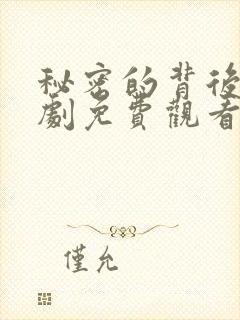 秘密的背後
劇免費觀看
僅允